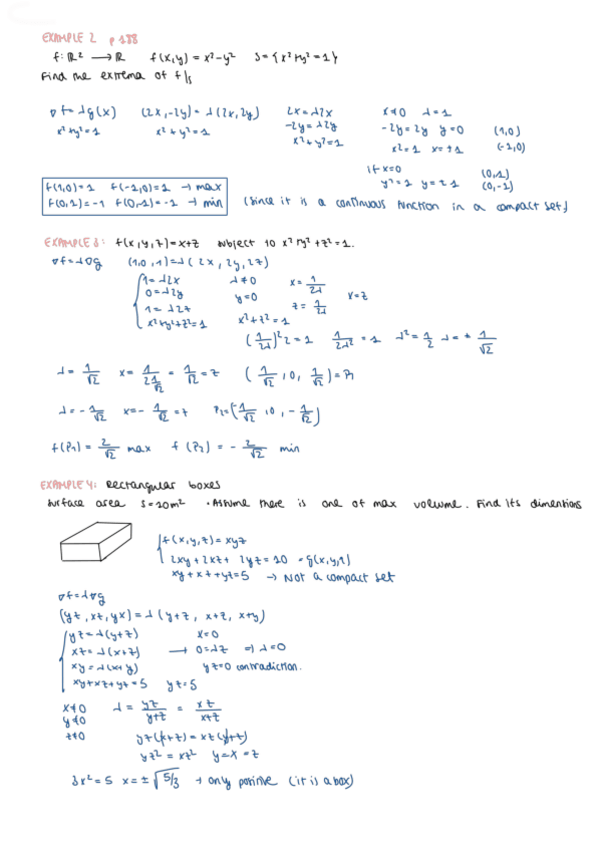 EXAMPLE 2 p 188
f: ℝ² → ℝ f(x,y) = x²-y² S = {x²+y² = 1}
Find the extrema of f|s
∇f = λg(x) (2x,-2y) = λ(2x,2y) 2x = λ2x x≠0 λ=1
x²+y²=1 x²+y²=1 -2y = λ2y -2y=2y y=0 (1,0)
x²+y²=1 x²=1 x=±1 (-1,0)
if x=0 (0,1)
y²=1 y=±1 (0,-1)
f(1,0)=1 f(-1,0)=1 → max
f(0,1)=-1 f(0,-1)=-1 → min (since it is a continuous function in a compact set)
EXAMPLE 3: f(x,y,z)=x+z subject to x²+y²+z²=1.
∇f=λ∇g (1,0,1)=λ(2x,2y,2z)
1=λ2x λ≠0 x=1/2λ
0=λ2y y=0 x=z
1=λ2z z=1/2λ
x²+y²+z²=1 x²+z²=1
(1/2λ)²2=1 1/2λ²=1 λ²=1/2 λ=±1/√2
λ=1/√2 x=1/(2 1/√2)=1/√2=z (1/√2,0,1/√2)=P₁
λ=-1/√2 x=-1/√2=z P₂=(-1/√2,0,-1/√2)
f(P₁)=2/√2 max f(P₂)=-2/√2 min
EXAMPLE 4: Rectangular boxes
Surface area S=10m² · Assume there is one of max volume. Find its dimentions
f(x,y,z)=xyz
2xy+2xz+2yz=10 = g(x,y,z)
xy+xz+yz=5 → Not a compact set
∇f=λ∇g
(yz,xz,yx)=λ(y+z, x+z, x+y)
yz=λ(y+z) x=0
xz=λ(x+z) → 0=λz ⇒ λ=0
xy=λ(x+y) yz=0 contradiction.
xy+xz+yz=5 yz=5
x≠0 λ=yz/(y+z)=xz/(x+z)
y≠0
z≠0 yz(x+z)=xz(y+z)
yz²=xz² y=x=z
3x²=5 x=±√5/3 → only positive (it is a box)